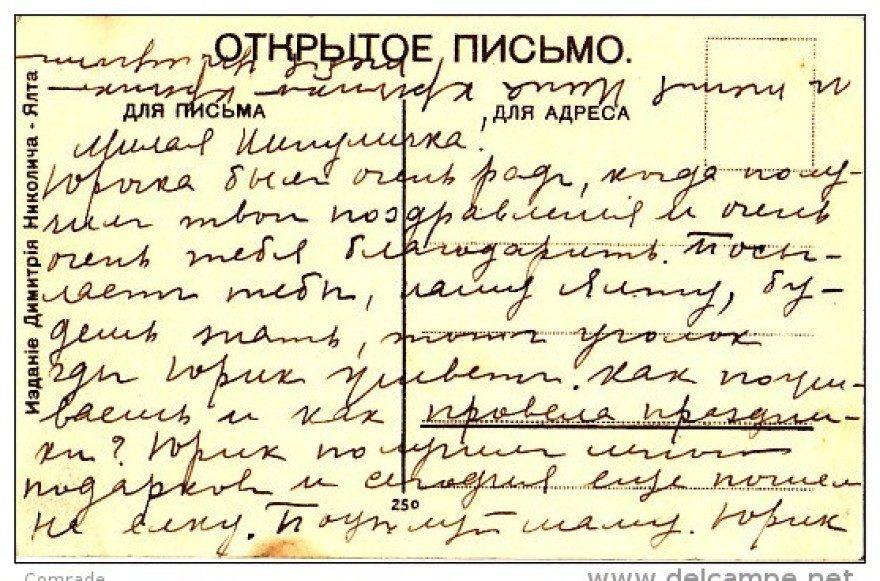 ОТКРЫТОЕ ПИСЬМО.
ДЛЯ ПИСЬМА
ДЛЯ АДРЕСА
Изданіе Димитрія Николича - Ялта
Милая
Юрочка былъ очень радъ, когда полу-
чилъ твои поздравленія и очень
очень тебя благодаритъ. Посы-
лаетъ тебѣ, нашу Ялту, бу-
дешь знать, тотъ уголок
гдѣ Юрик живетъ. Как пожи-
ваешь и как провела праздни-
ки? Юрик получил много
подарков и сегодня еще пошел
на елку. Поцѣлуй маму. Юрик
250
Comrade
www.delcampe.net